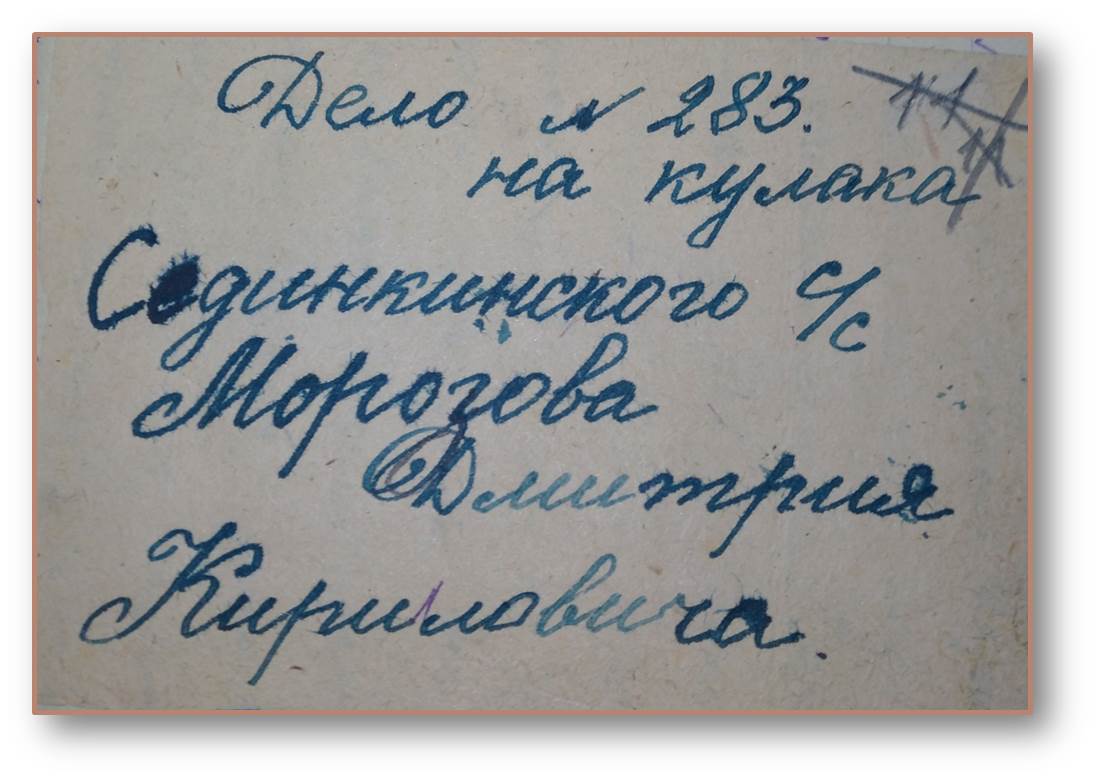 Дело № 283.
на кулака
Сединкинского с/с
Морозова
Дмитрия
Кирилловича.